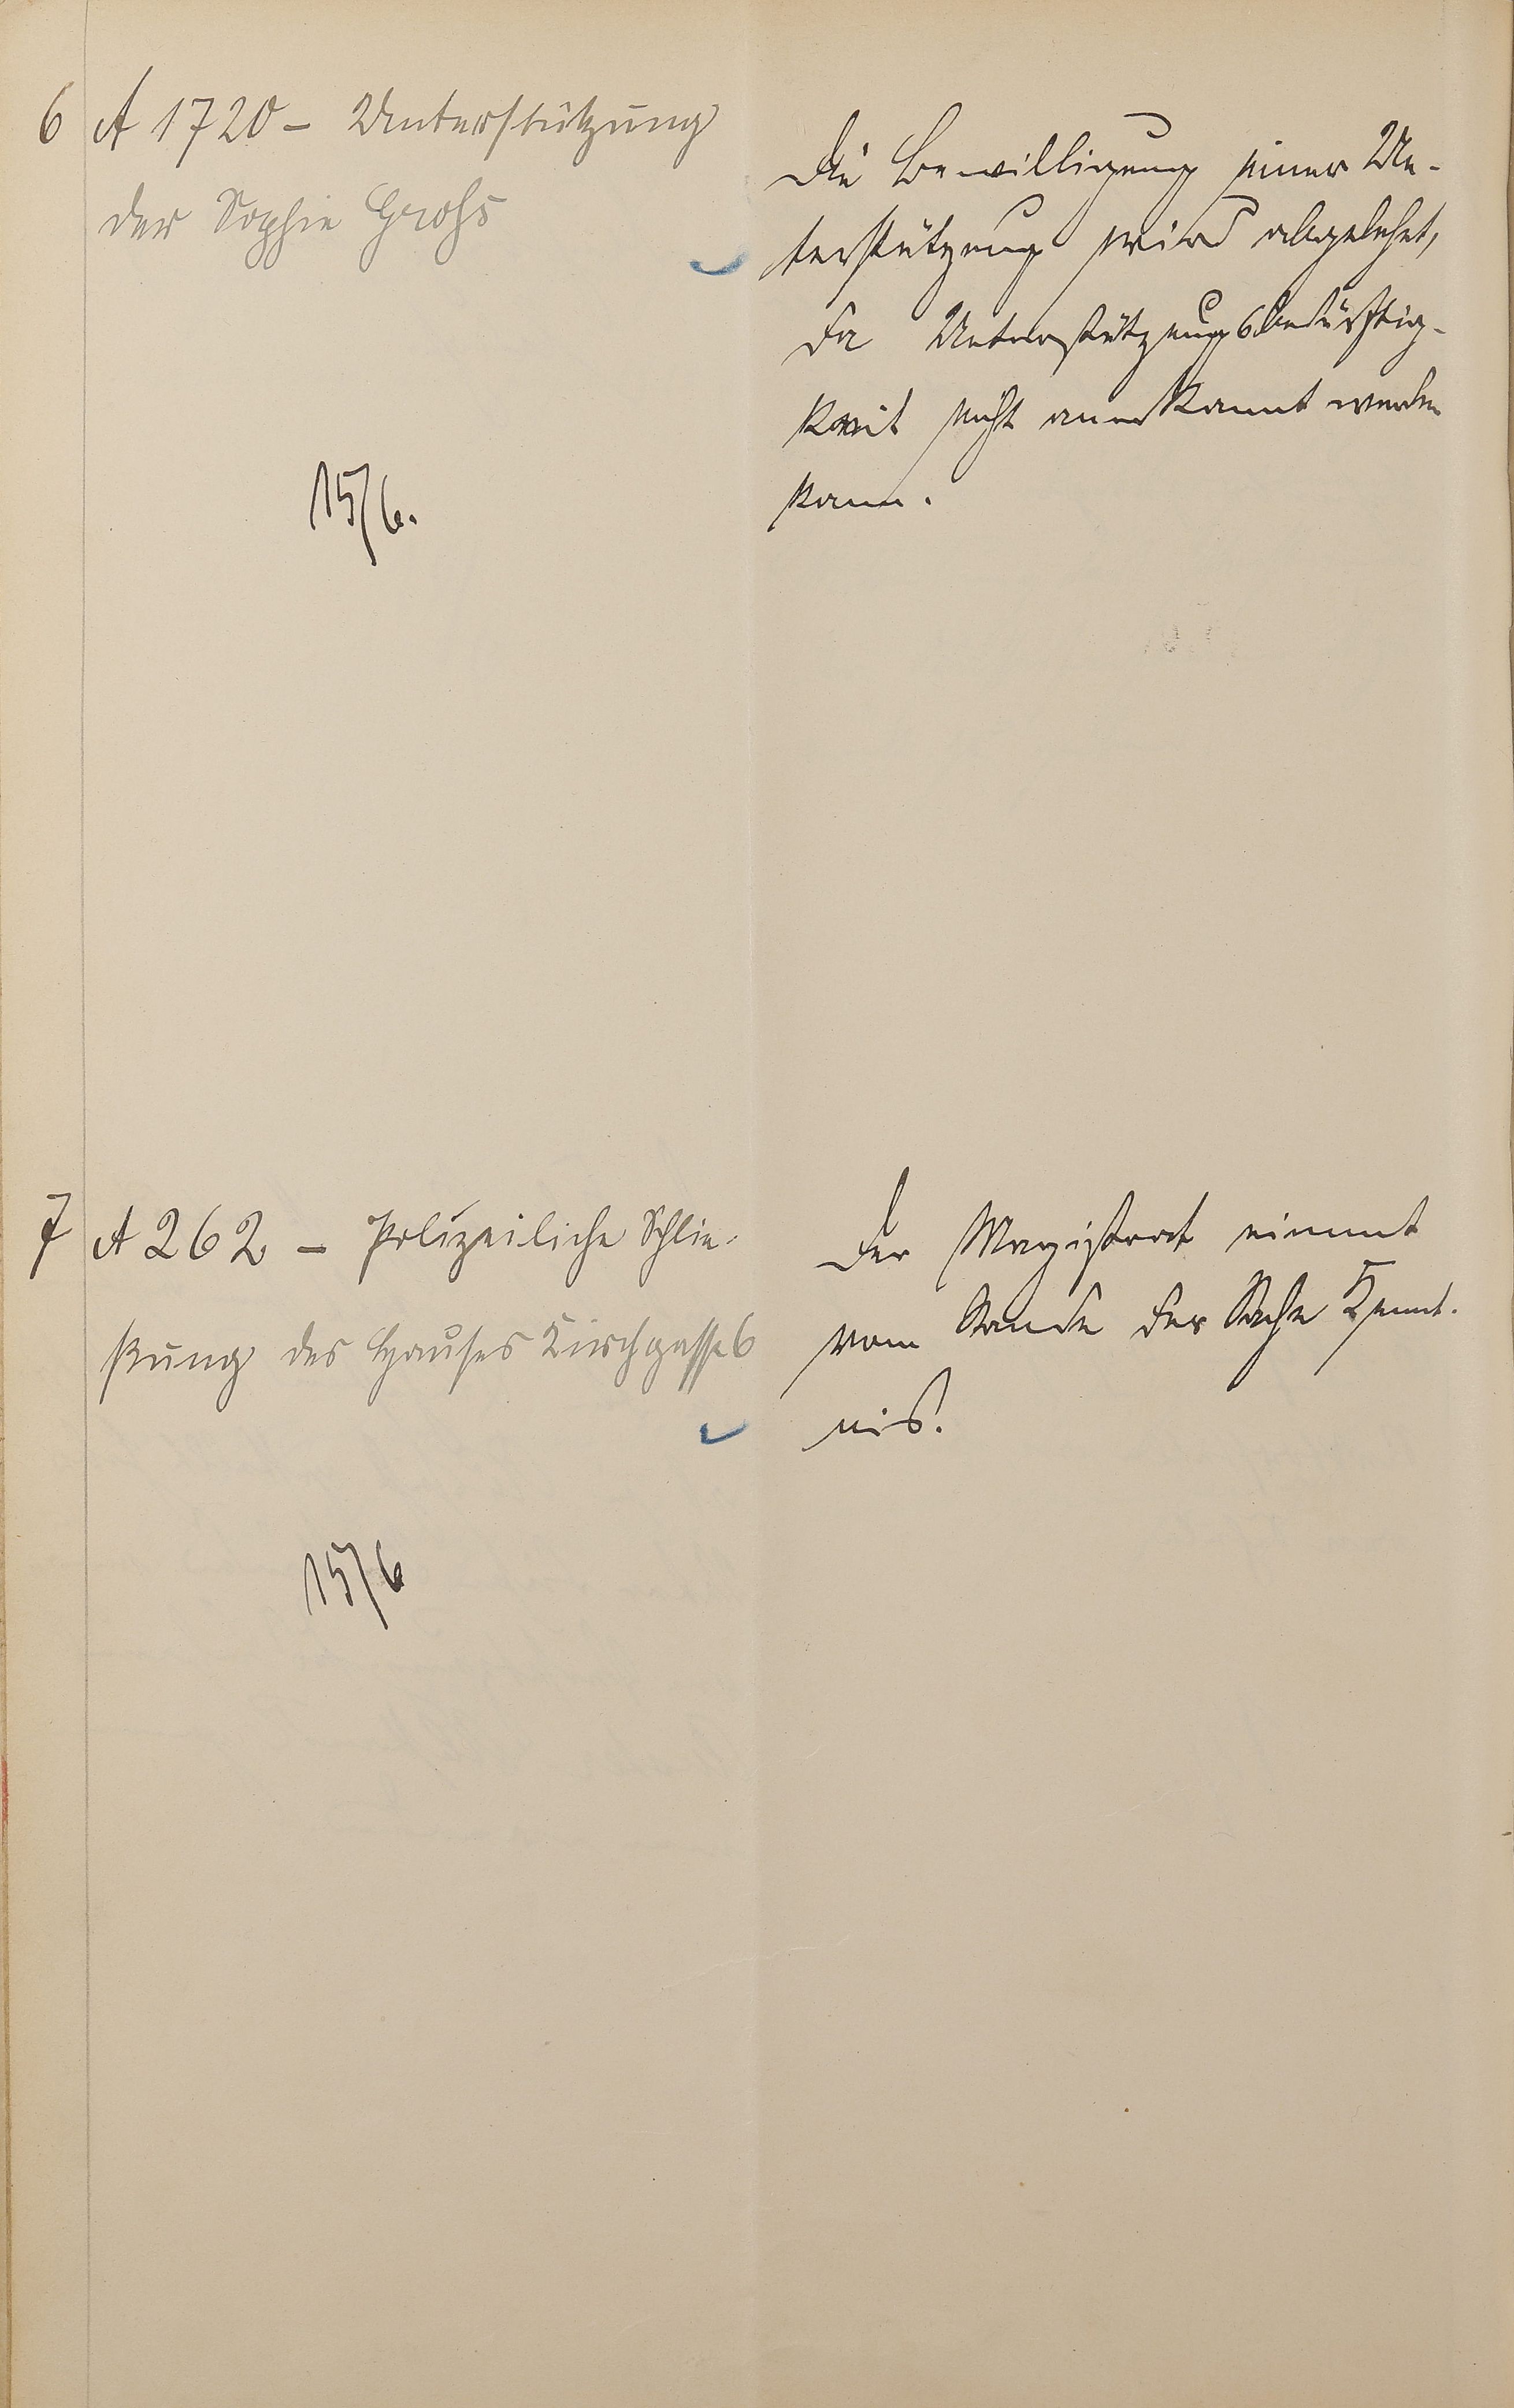 6 A 1720 - Unterstützung
der Sophie Grohs
15/6.
Die Bewilligung einer Un-
terstützung wird abgelehnt,
da Unterstützungsbedürftig-
keit nicht anerkannt werden
kann.
7 A 262 - Polizeiliche Schlie-
ßung des Hauses Kirchgasse 6
15/6
Der Magistrat nimmt
vom Stande der Sache Kennt-
nis.